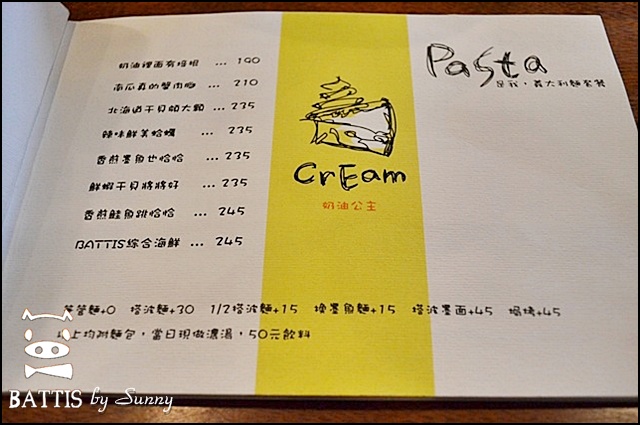 Pasta
是我，義大利麵套餐
奶油裡面有培根 ... 190
南瓜真的蟹肉 ... 210
北海道干貝頗大顆 ... 235
辣味鮮美蛤蠣 ... 235
香煎墨魚也恰恰 ... 235
鮮蝦干貝將將好 ... 235
香煎鮭魚跳恰恰 ... 245
BATTIS綜合海鮮 ... 245
CrEam
奶油公主
筆管麵+0 塔波麵+30 1/2塔波麵+15 換墨魚麵+15 塔波墨面+45 焗烤+45
上均附麵包，當日現做濃湯，50元飲料
BATTIS by Sunny